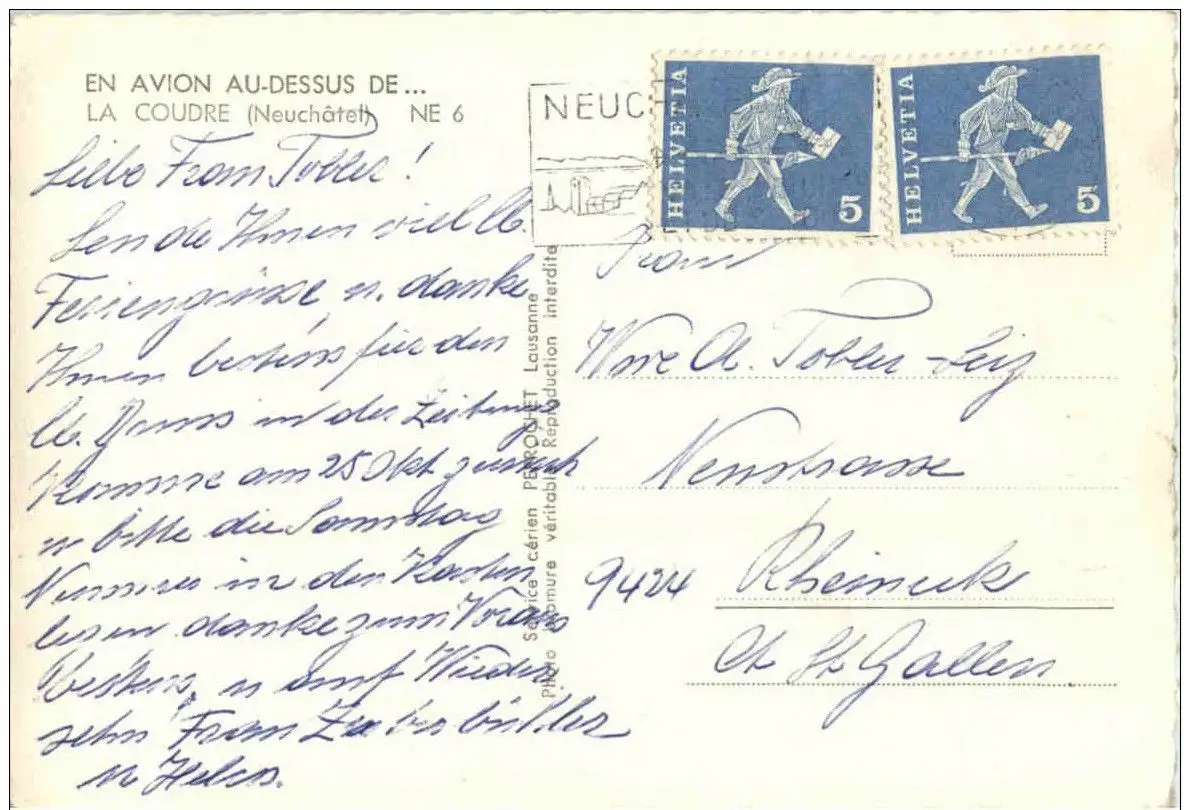 EN AVION AU-DESSUS DE...
LA COUDRE (Neuchâtel) NE 6
NEUCH
HELVETIA
5
HELVETIA
5
Liebe Frau Tobler!
Sende Ihnen viel lb.
Feriengrüsse, u. danke
Ihnen bestens für den
lb. Gruss in der Zeitung
Komme am 25 Okt zurück
u bitte die Samstag
Nummer in den Kasten
legen danke zum Voraus
bestens, u auf Wieder
sehn Frau
u
Service aérien PERROCHET Lausanne
Photo bromure véritable Reproduction interdite
Frau
Wwe A. Tobler-
Neustrasse
9424 Rheineck
Ct St Gallen